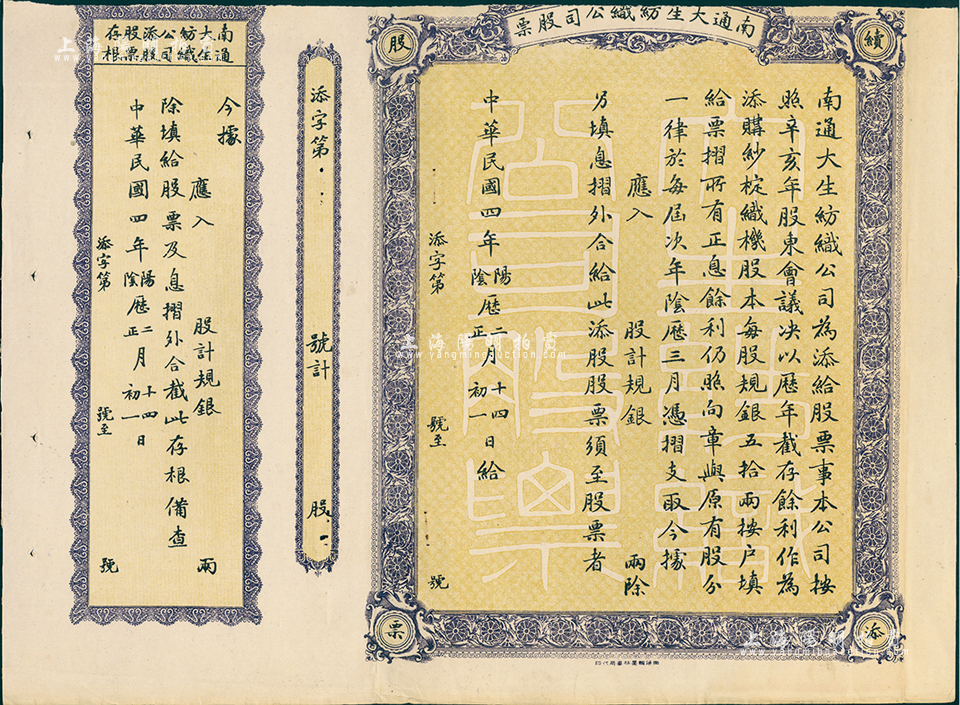 南通大生紡織公司股票
續
股
添
票
南通大生紡織公司為添給股票事本公司按
照辛亥年股東會議决以歷年截存餘利作為
添購紗椗織機股本每股規銀五拾兩按户填
給票摺所有正息餘利仍照向章與原有股分
一律於每屆次年陰歷三月憑摺支取今據
應入 股計規銀 兩除
另填息摺外合給此添股股票須至股票者
中華民國四年陽陰歷二正月十四初一日給
添字第 號至 號
南通翰墨林書局代印
添字第 號計 股
南通大生紡織公司添股股票存根
今據
應入 股計規銀 兩
除填給股票及息摺外合截此存根備查
中華民國四年陽陰歷二正月十四初一日
添字第 號至 號
上海陽明拍賣
www.yangmingauction.com